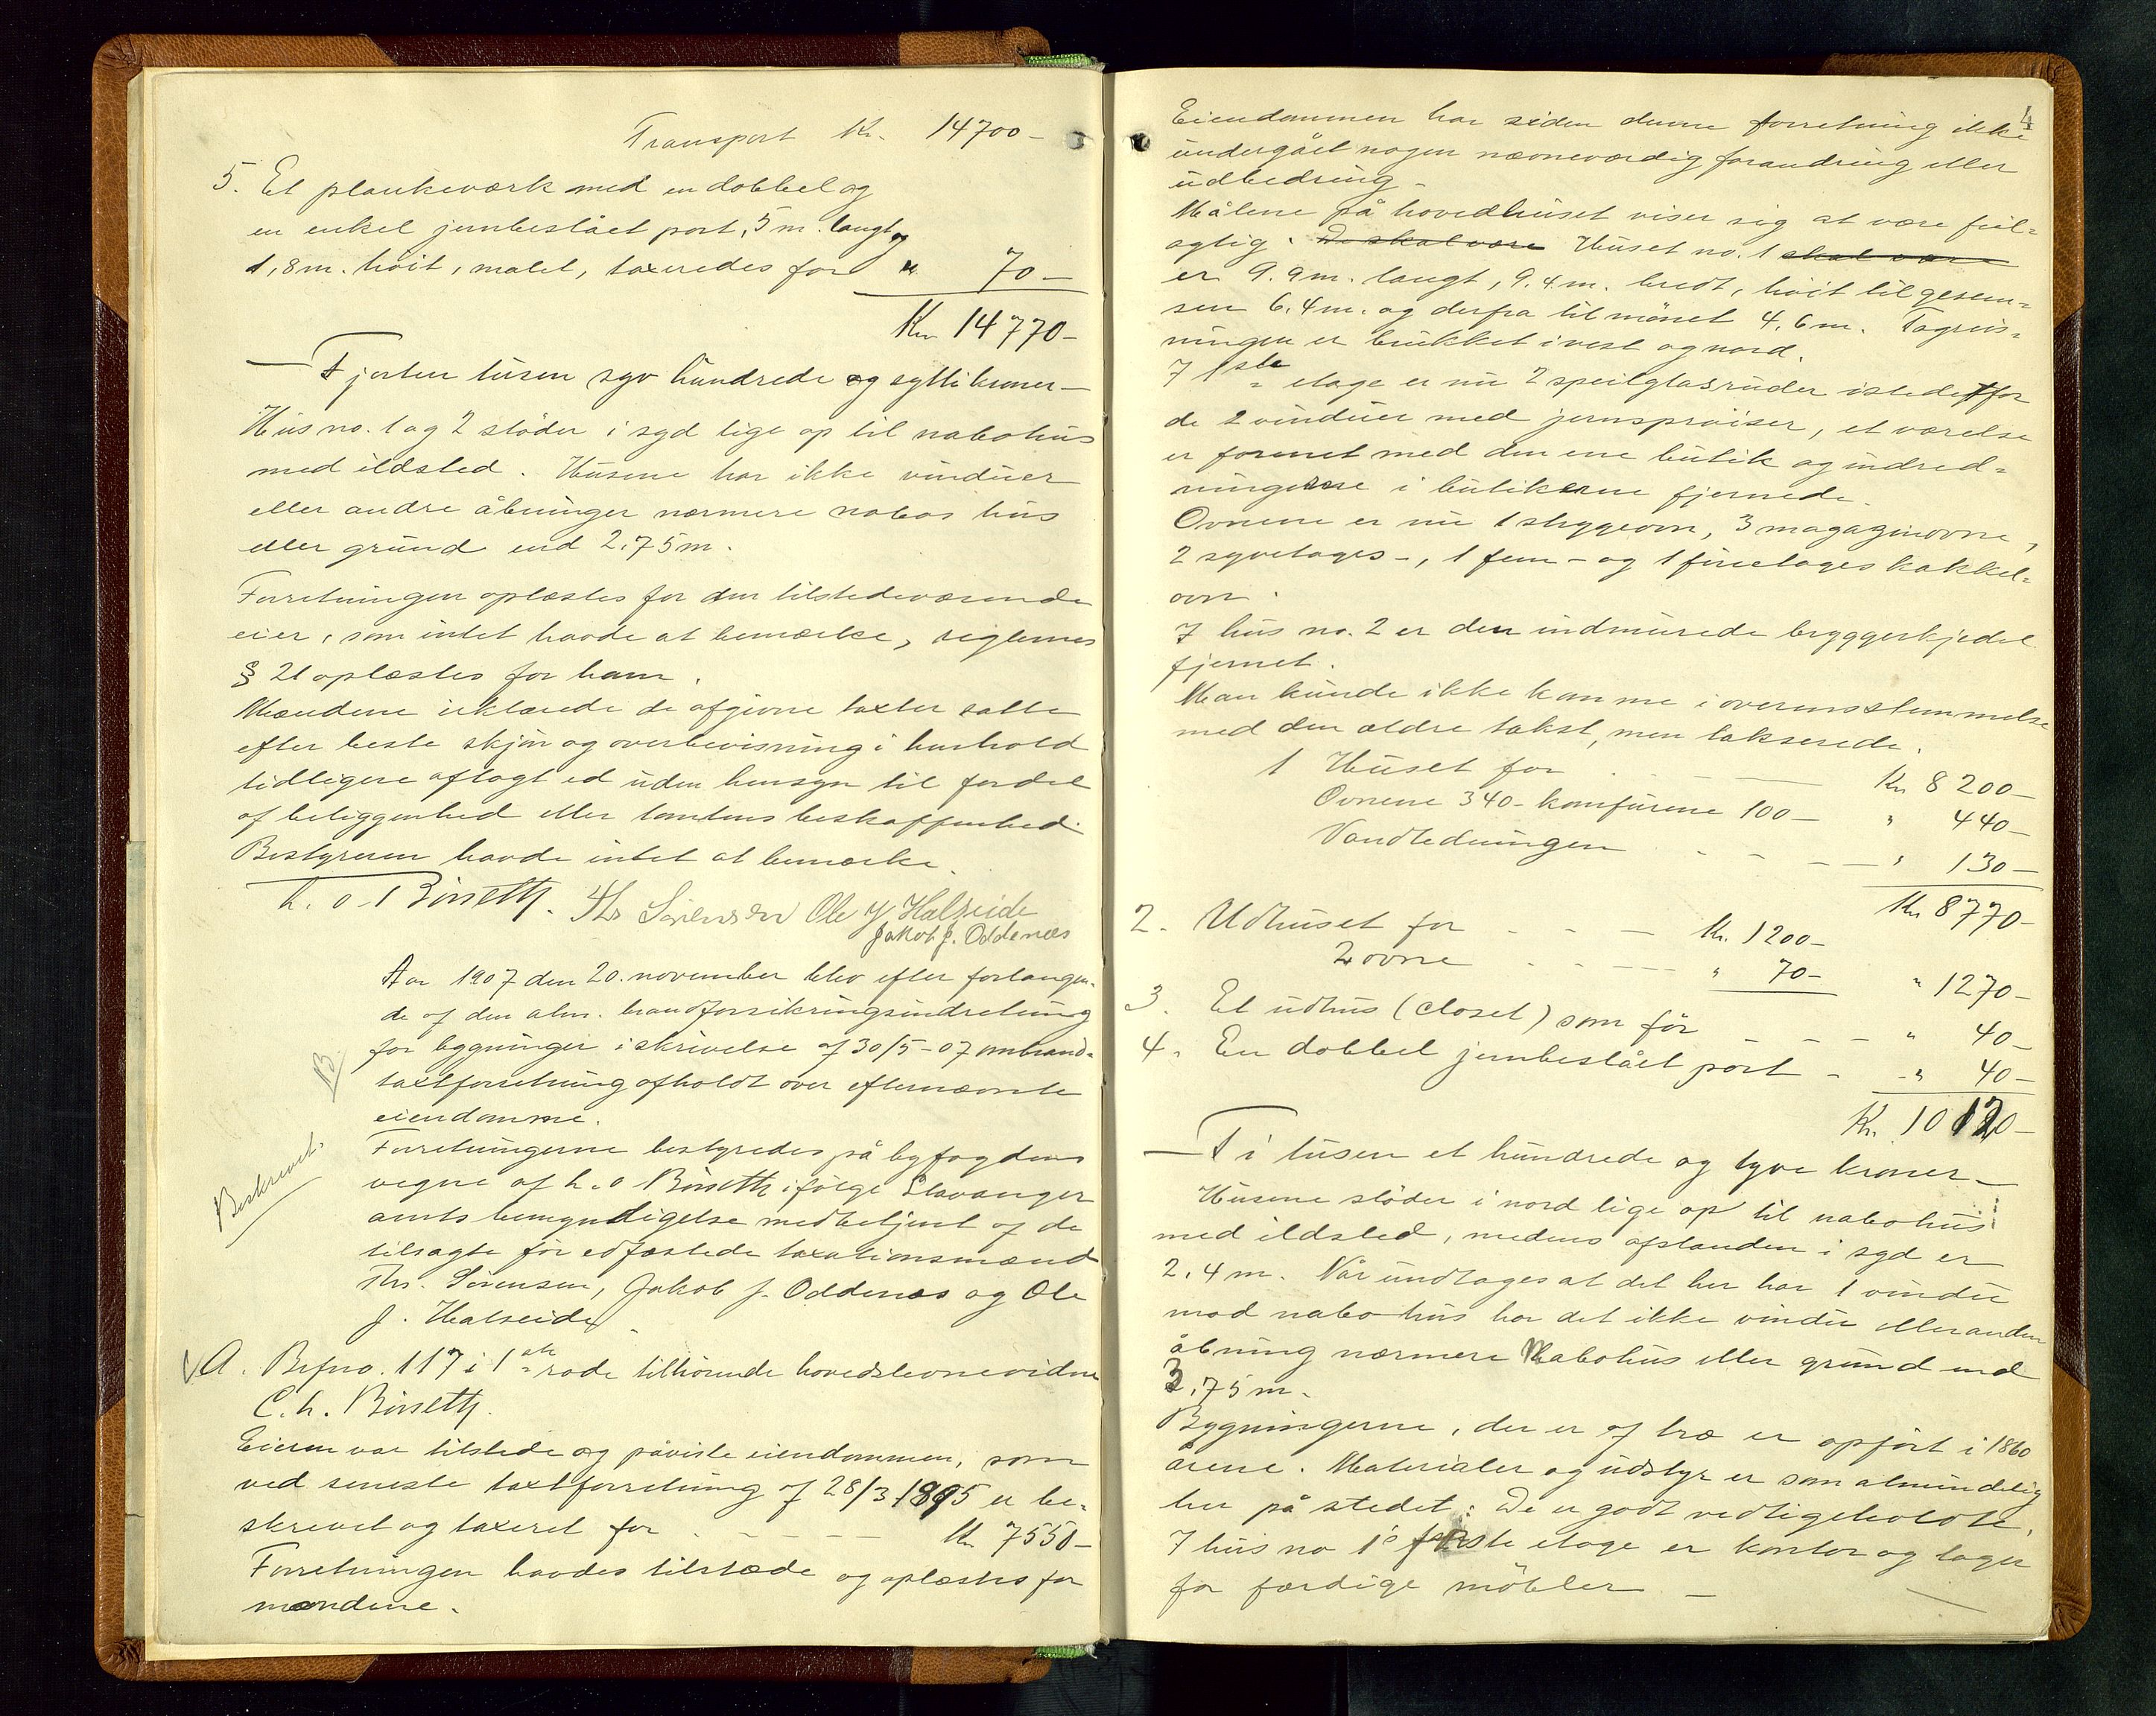 Transport Kr. 14700-
5. Et plankeværk med en dobbel og
en enkel jernbeslået port, 5 m. langt og
1,8 m. höit, malet, taxeredes for " 70-
Kr. 14770-
- Fjorten tusen syv hundrede og sytti kroner -
Hus no. 1 og 2 stöder i syd lige op til nabohus
med ildsted. Husene har ikke vinduer
eller andre åbninger nærmere nabos hus
eller grund end 2.75 m.
Forretningen oplæstes for den tilstedeværende
eier, som intet havde at bemærke, reglernes
§ 21 oplæstes for ham.
Mændene erklærede de afgivne taxter satte
efter beste skjön og overbevisning i henhold
tidligere aflagt ed uden hensyn til fordel
af beliggenhed eller tomtens beskaffenhed.
Bestyreren havde intet at bemærke.
Ths Sörensen Ole J Halseide
Jakob J. Oddenæs
Aar 1907 den 20. november blev efter forlangen-
de af den alm. brandforsikringsindretning
for bygninger i skrivelse af 30/5-07 ombrand-
taxtforretning afholdt over efternævnte
eiendomme.
Forretningerne bestyredes på byfogdens
vegne af ifölge Stavanger
amts bemyndigelse medbetjent af de
tilsagte för edfæstede taxationsmænd
Ths. Sörensen, Jakob J. Oddenæs og Ole
J. Halseide.
Beskrevet.
A. Brfno. 117 i 1ste rode tilhörende hovedstevnevidne
Eieren var tilstede og påviste eiendommen, som
ved seneste taxtforretning af 28/3 1895 er be-
skrevet og taxeret for - - - - Kr. 7550-
Forretningen havdes tilstæde og oplæstes for
mændene.
4
Eiendommen har siden denne forretning ikke
undergået nogen nævneværdig forandring eller
udbedring -
Målene på hovedhuset viser sig at være feil-
agtig. De skal være Huset no. 1 skal være
er 9.9 m. langt, 9.4 m. bredt, höit til gesim-
sen 6.4 m. og derfra til mönet 4.6 m. Tagreis-
ningen er brukket i vest og nord.
I 1ste etage er nu 2 speilglasruder istedetfor
de 2 vinduer med jernsproiser, et værelse
er forenet med den ene butik og indred-
ningerne i butikerne fjernede.
Ovnene er nu 1 strygeovn, 3 magazinovne,
2 syvetages-, 1 fem- og 1 fireetages kakkel-
ovn.
I hus no. 2 er den indmurede bryggerkjedel
fjernet.
Man kunde ikke komme i overensstemmelse
med den ældre takst, men takserede.
1 Huset for - - - Kr 8200-
Ovnene 340- komfurene 100- " 440-
Vandledningen - - - - " 130-
Kr 8770-
2. Udhuset for - - - Kr. 1200-
2 ovne - - - - " 70- " 1270-
3. Et udhus (closet) som för - - - " 40-
4. En dobbel jernbeslået port - - " 40-
Kr. 10120-
- Ti tusen et hundrede og tyve kroner -
Husene stöder i nord lige op til nabohus
med ildsted, medens afstanden i syd er
2,4 m. Når undtages at det her har 1 vindu
mod nabohus har det ikke vindu eller anden
åbning nærmere Nabohus eller grund end
3.75 m.
Bygningerne, der er af træ er opfört i 1860
årene. Materialer og udstyr er som almindelig
her på stedet: De er godt vedligeholdte.
I hus no 1s förste etage er kontor og lager
for færdige möbler -